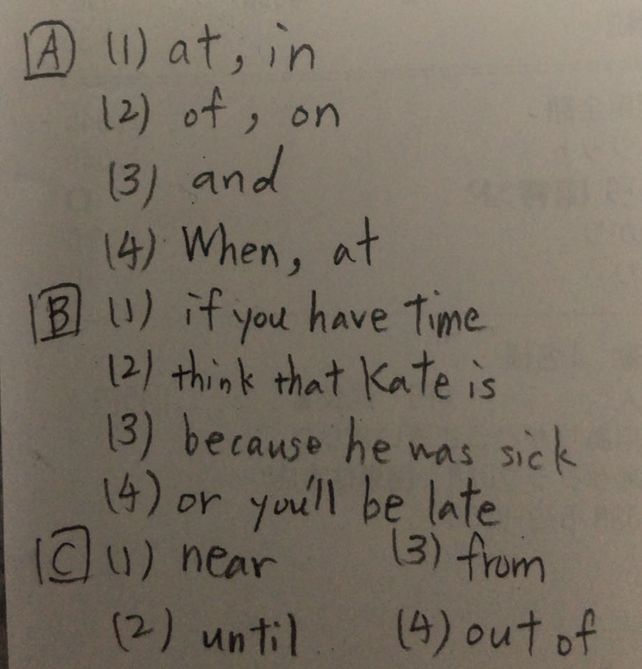 A (1) at, in
(2) of, on
(3) and
(4) When, at
B (1) if you have time
(2) think that Kate is
(3) because he was sick
(4) or you'll be late
C (1) near (3) from
(2) until (4) out of